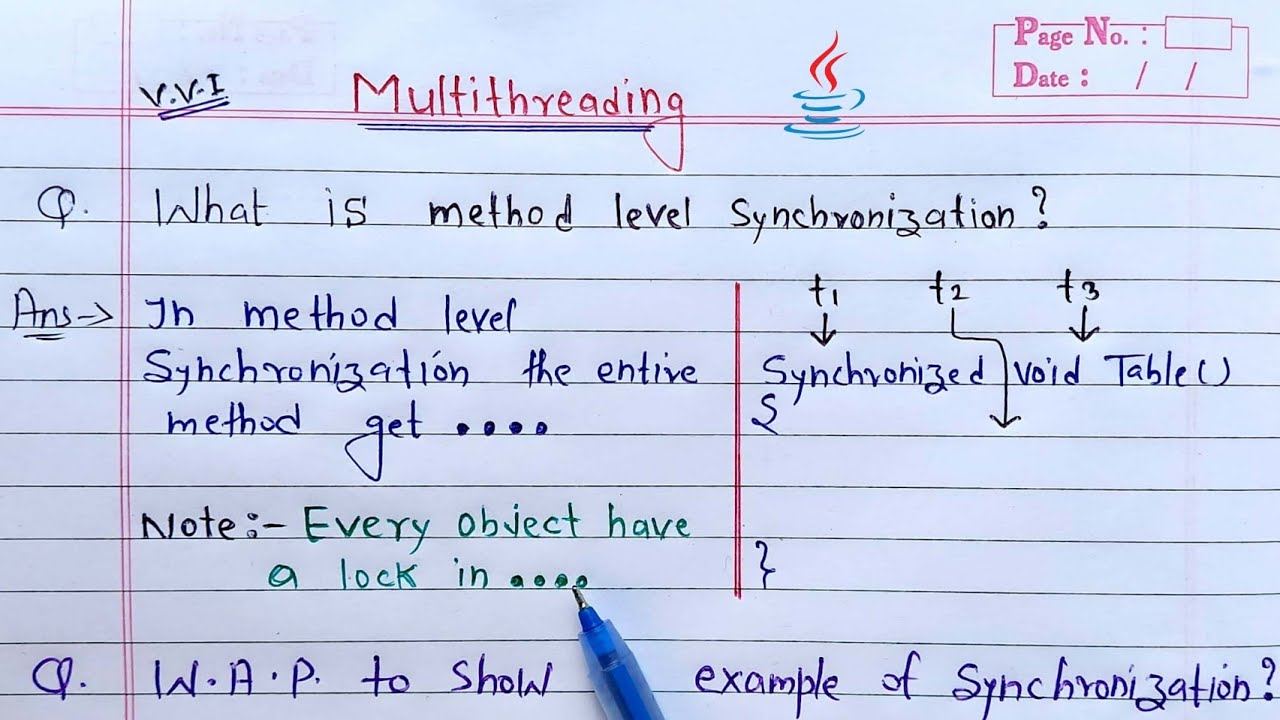 Page No. :
Date : / /
V.V.I Multithreading
Q. What is method level Synchronization?
Ans-> In method level
Synchronization the entire
method get ....
Note:- Every object have
a lock in ....
t1 t2 t3
Synchronized void Table()
{
}
Q. W.A.P. to show example of Synchronization?